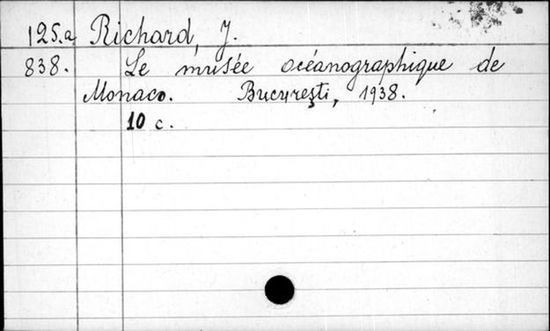 125.a Richard, J.
838. Le musée océanographique de
Monaco. Bucureşti, 1938.
10 c.